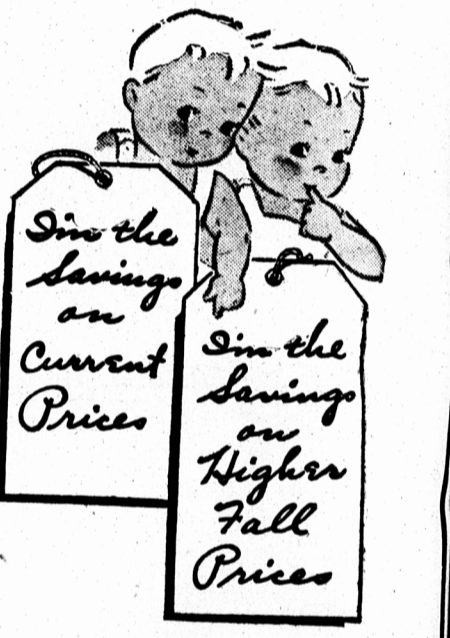 I'm the
Savings
on
Current
Prices
I'm the
Savings
on
Higher
Fall
Prices